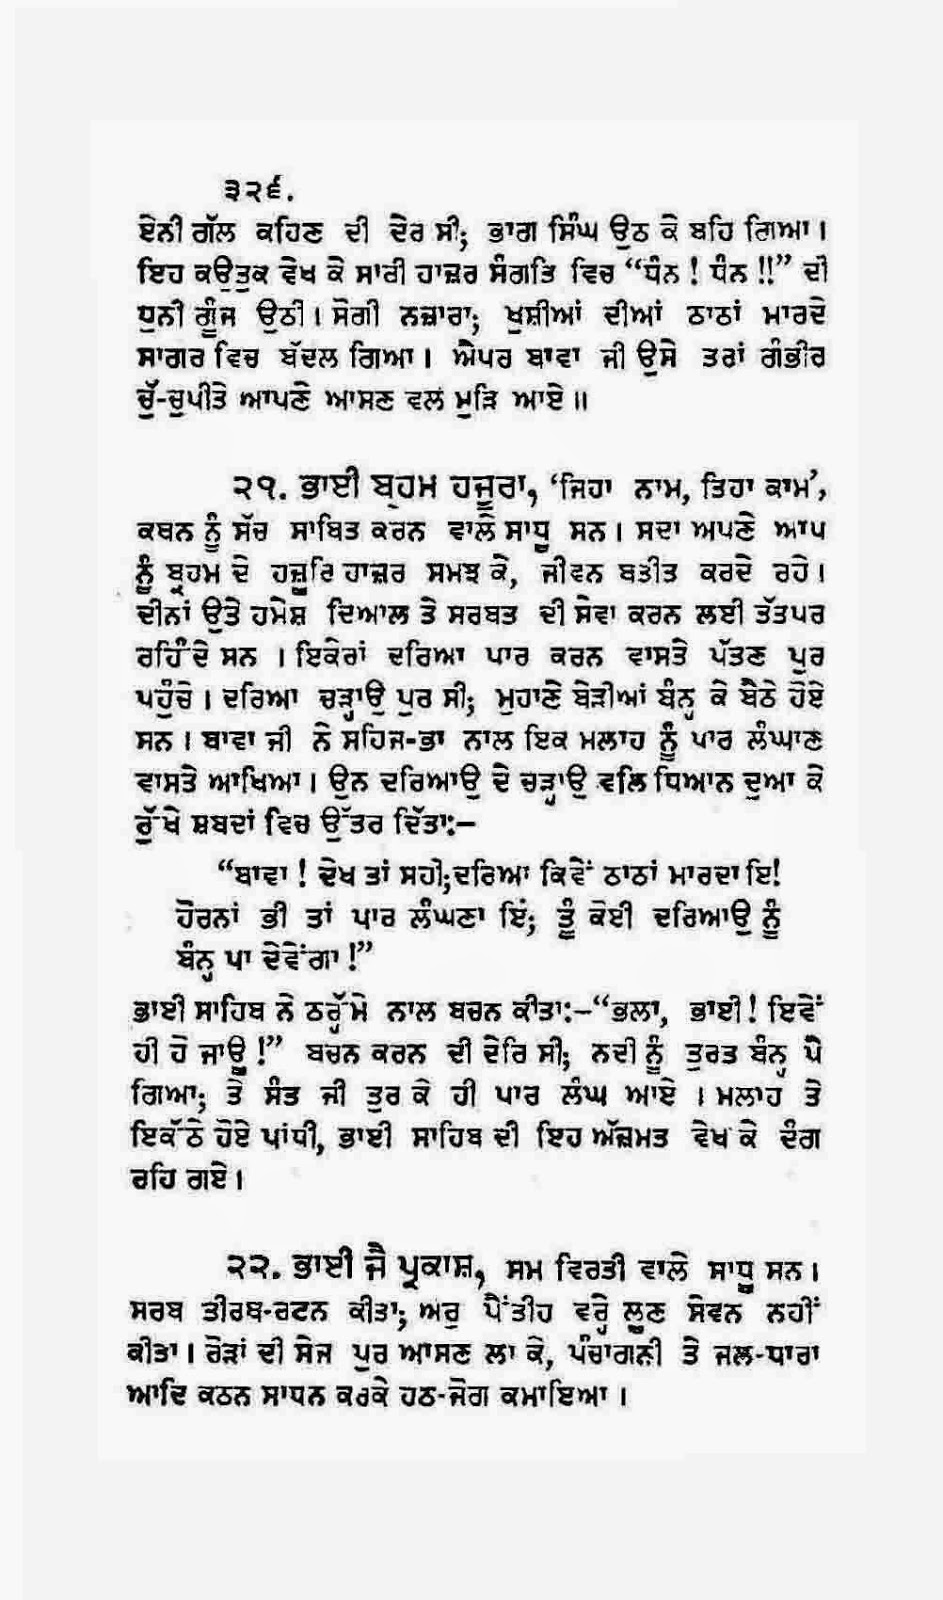 ੩੨੬.
ਏਨੀ ਗੱਲ ਕਹਿਣ ਦੀ ਦੇਰ ਸੀ; ਭਾਗ ਸਿੰਘ ਉਠ ਕੇ ਬਹਿ ਗਿਆ।
ਇਹ ਕਉਤੁਕ ਵੇਖ ਕੇ ਸਾਰੀ ਹਾਜ਼ਰ ਸੰਗਤਿ ਵਿਚ “ਧੰਨ ! ਧੰਨ !!” ਦੀ
ਧੁਨੀ ਗੂੰਜ ਉਠੀ। ਸੋਗੀ ਨਜ਼ਾਰਾ; ਖੁਸ਼ੀਆਂ ਦੀਆਂ ਠਾਠਾਂ ਮਾਰਦੇ
ਸਾਗਰ ਵਿਚ ਬੱਦਲ ਗਿਆ। ਐਪਰ ਬਾਵਾ ਜੀ ਉਸੇ ਤਰਾਂ ਗੰਭੀਰ
ਚੁੱ-ਚੁਪੀਤੇ ਆਪਣੇ ਆਸਣ ਵਲ ਮੁੜਿ ਆਏ॥
੨੧. ਭਾਈ ਬ੍ਰਹਮ ਹਜੂਰਾ, ‘ਜਿਹਾ ਨਾਮ, ਤਿਹਾ ਕਾਮ’,
ਕਥਨ ਨੂੰ ਸੱਚ ਸਾਬਿਤ ਕਰਨ ਵਾਲੇ ਸਾਧੂ ਸਨ। ਸਦਾ ਅਪਣੇ ਆਪ
ਨੂੰ ਬ੍ਰਹਮ ਦੇ ਹਜ਼ੂਰਿ ਹਾਜ਼ਰ ਸਮਝ ਕੇ, ਜੀਵਨ ਬਤੀਤ ਕਰਦੇ ਰਹੇ।
ਦੀਨਾਂ ਉਤੇ ਹਮੇਸ਼ ਦਿਆਲ ਤੇ ਸਰਬਤ ਦੀ ਸੇਵਾ ਕਰਨ ਲਈ ਤੱਤਪਰ
ਰਹਿੰਦੇ ਸਨ । ਇਕੇਰਾਂ ਦਰਿਆ ਪਾਰ ਕਰਨ ਵਾਸਤੇ ਪੱਤਣ ਪੁਰ
ਪਹੁੰਚੇ। ਦਰਿਆ ਚੜ੍ਹਾਉ ਪੁਰ ਸੀ; ਮੁਹਾਣੇ ਬੇੜੀਆਂ ਬੰਨ੍ਹ ਕੇ ਬੈਠੇ ਹੋਏ
ਸਨ। ਬਾਵਾ ਜੀ ਨੇ ਸਹਿਜ-ਭਾ ਨਾਲ ਇਕ ਮਲਾਹ ਨੂੰ ਪਾਰ ਲੰਘਾਣ
ਵਾਸਤੇ ਆਖਿਆ। ਉਨ ਦਰਿਆਉ ਦੇ ਚੜ੍ਹਾਉ ਵਲਿ ਧਿਆਨ ਦੁਆ ਕੇ
ਰੁੱਖੇ ਸ਼ਬਦਾਂ ਵਿਚ ਉੱਤਰ ਦਿੱਤਾ:—
“ਬਾਵਾ ! ਦੇਖ ਤਾਂ ਸਹੀ; ਦਰਿਆ ਕਿਵੇਂ ਠਾਠਾਂ ਮਾਰਦਾ ਇ!
ਹੋਰਨਾਂ ਭੀ ਤਾਂ ਪਾਰ ਲੰਘਣਾ ਇੰ; ਤੂੰ ਕੋਈ ਦਰਿਆਉ ਨੂੰ
ਬੰਨ੍ਹ ਪਾ ਦੇਵੇਂਗਾ !”
ਭਾਈ ਸਾਹਿਬ ਨੇ ਠਰ੍ਹੱਮੇ ਨਾਲ ਬਚਨ ਕੀਤਾ:—“ਭਲਾ, ਭਾਈ ! ਇਵੇਂ
ਹੀ ਹੋ ਜਾਊ !” ਬਚਨ ਕਰਨ ਦੀ ਦੇਰਿ ਸੀ; ਨਦੀ ਨੂੰ ਤੁਰਤ ਬੰਨ੍ਹ ਪੈ
ਗਿਆ; ਤੇ ਸੰਤ ਜੀ ਤੁਰ ਕੇ ਹੀ ਪਾਰ ਲੰਘ ਆਏ । ਮਲਾਹ ਤੇ
ਇਕੱਠੇ ਹੋਏ ਪਾਂਧੀ, ਭਾਈ ਸਾਹਿਬ ਦੀ ਇਹ ਅੱਜ਼ਮਤ ਵੇਖ ਕੇ ਦੰਗ
ਰਹਿ ਗਏ।
੨੨. ਭਾਈ ਜੈ ਪ੍ਰਕਾਸ਼, ਸਮ ਵਿਰਤੀ ਵਾਲੇ ਸਾਧੂ ਸਨ।
ਸਰਬ ਤੀਰਥ-ਰਟਨ ਕੀਤਾ; ਅਰੁ ਪੈਂਤੀਹ ਵਰ੍ਹੇ ਲੂਣ ਸੇਵਨ ਨਹੀਂ
ਕੀਤਾ। ਰੋੜਾਂ ਦੀ ਸੇਜ ਪੁਰ ਆਸਣ ਲਾ ਕੇ, ਪੰਚਾਗਨੀ ਤੇ ਜਲ-ਧਾਰਾ
ਆਦਿ ਕਠਨ ਸਾਧਨ ਕਰਕੇ ਹਠ-ਜੋਗ ਕਮਾਇਆ।